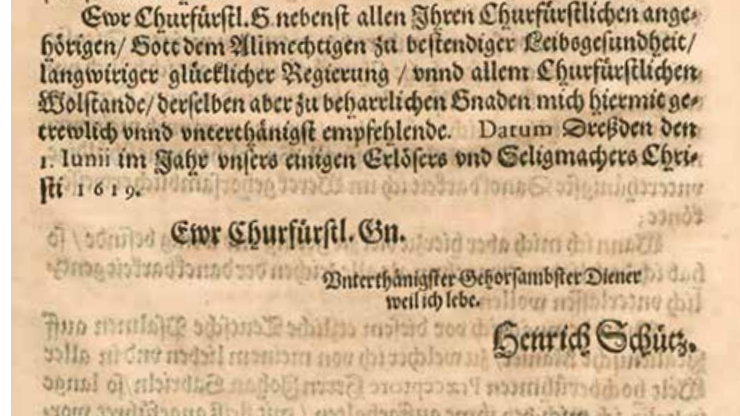 Ewr Churfürstl. G. nebenst allen Ihren Churfürstlichen ange-
hörigen/ Gott dem Allmechtigen zu bestendiger Leibsgesundheit/
langwiriger glücklicher Regierung / vnnd allem Churfürstlichen
Wolstande/ derselben aber zu beharrlichen Gnaden mich hiermit ge-
trewlich vnnd vnterthänigst empfehlende. Datum Dreßden den
1. Iunii im Jahr vnsers einigen Erlösers vnd Seligmachers Chri-
sti 1619.
Ewr Churfürstl. Gn.
Vnterthänigster Gehorsambster Diener
weil ich lebe.
Henrich Schütz.